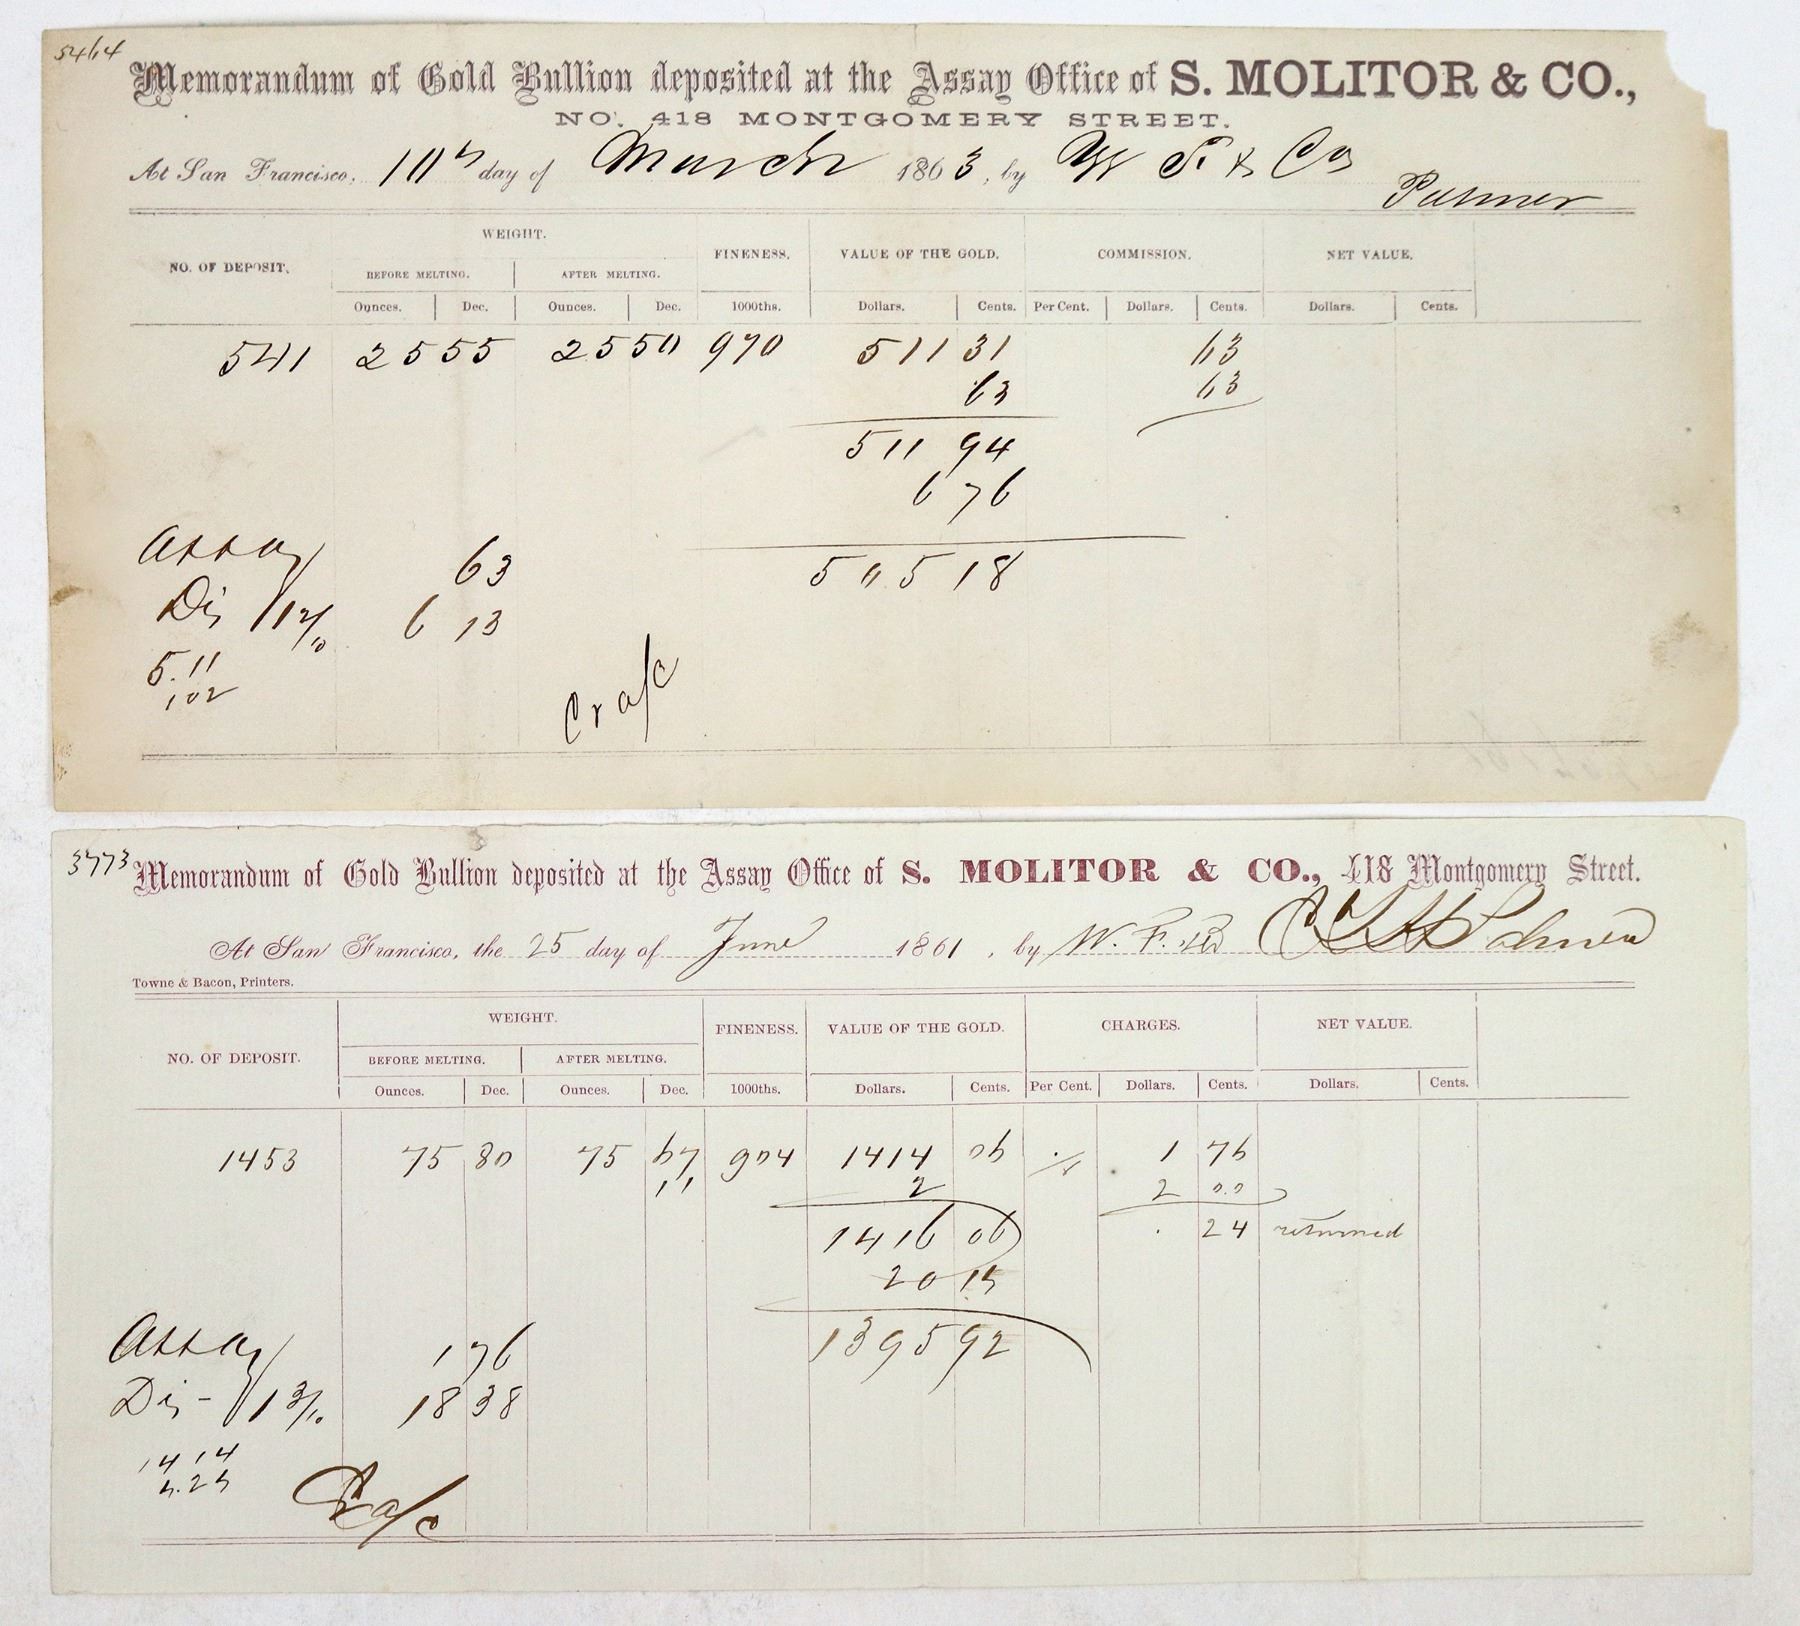 5464
Memorandum of Gold Bullion deposited at the Assay Office of S. MOLITOR & CO.,
NO. 418 MONTGOMERY STREET.
At San Francisco, 10th day of March 1863, by W F & Co
Palmer
NO. OF DEPOSIT. WEIGHT. FINENESS. VALUE OF THE GOLD. COMMISSION. NET VALUE.
BEFORE MELTING. AFTER MELTING.
Ounces. Dec. Ounces. Dec. 1000ths. Dollars. Cents. Per Cent. Dollars. Cents. Dollars. Cents.
541 25 55 25 50 970 511 31 63
63 63
511 94
6 76
Assay 63 505 18
Dis 1 2/10 6 13
5.11
102
Cr a/c
3773
Memorandum of Gold Bullion deposited at the Assay Office of S. MOLITOR & CO., 418 Montgomery Street.
At San Francisco, the 25 day of June 1861, by W. F. & Co C T H Palmer
Towne & Bacon, Printers.
NO. OF DEPOSIT. WEIGHT. FINENESS. VALUE OF THE GOLD. CHARGES. NET VALUE.
BEFORE MELTING. AFTER MELTING.
Ounces. Dec. Ounces. Dec. 1000ths. Dollars. Cents. Per Cent. Dollars. Cents. Dollars. Cents.
1453 75 80 75 67 904 1414 06 1 76
2 2 00
1416 06 24 returned
20 14
Assay 1 76 1395 92
Dis - 1 3/10 18 38
14 14
4.24
Cr a/c